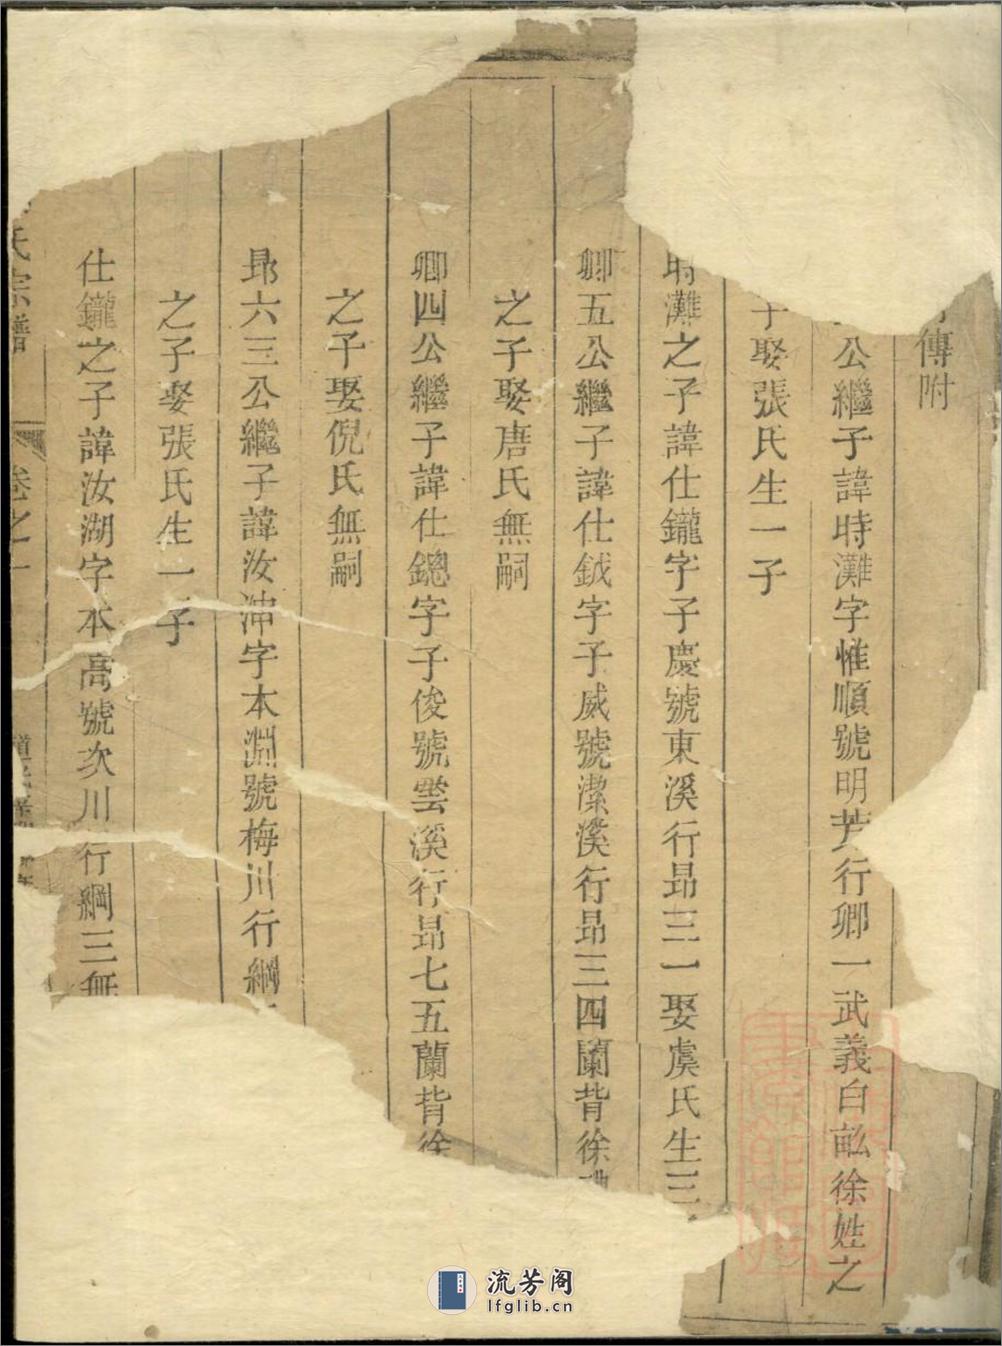 傳附
公繼子諱時灘字惟順號明芳行卿一武義白畆徐姓之
子娶張氏生一子
時灘之子諱仕鑨字子慶號東溪行昻三一娶虞氏生三
卿五公繼子諱仕鉞字子威號潔溪行昻三四蘭背徐
之子娶唐氏無嗣
卿四公繼子諱仕鏓字子俊號雲溪行昻七五蘭背徐
之子娶倪氏無嗣
昻六三公繼子諱汝沖字本淵號梅川行綱
之子娶張氏生一子
仕鑨之子諱汝湖字本高號次川行綱三無
氏宗譜 卷之一
流芳阁
lfglib.cn